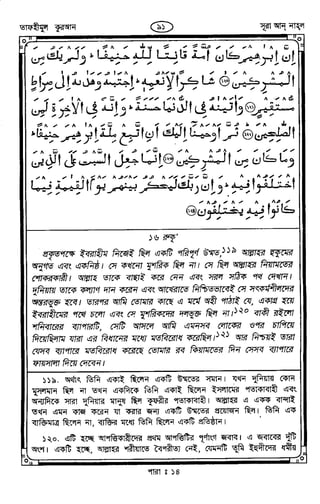 তাফহীমুল কুরআন
৯১
সূরা আন্ নাহল
إِنَّ إِبْرٰهِيْمَ كَانَ أُمَّةً قَانِتًا لِّلّٰهِ حَنِيْفًا ۖ وَلَمْ يَكُ مِنَ
الْمُشْرِكِيْنَ ۝ شَاكِرًا لِّأَنْعُمِهِ ۖ اجْتَبٰهُ وَهَدٰىهُ إِلٰى صِرَاطٍ
مُّسْتَقِيْمٍ ۝ وَاٰتَيْنٰهُ فِى الدُّنْيَا حَسَنَةً ۖ وَإِنَّهُ فِى الْاٰخِرَةِ لَمِنَ
الصّٰلِحِيْنَ ۝ ثُمَّ أَوْحَيْنَا إِلَيْكَ أَنِ اتَّبِعْ مِلَّةَ إِبْرٰهِيْمَ حَنِيْفًا ۖ
وَمَا كَانَ مِنَ الْمُشْرِكِيْنَ ۝ إِنَّمَا جُعِلَ السَّبْتُ عَلَى الَّذِيْنَ
اخْتَلَفُوْا فِيْهِ ۖ وَإِنَّ رَبَّكَ لَيَحْكُمُ بَيْنَهُمْ يَوْمَ الْقِيٰمَةِ فِيْمَا
كَانُوْا فِيْهِ يَخْتَلِفُوْنَ ۝
১৬ রুকূ'
প্রকৃতপক্ষে ইবরাহীম নিজেই ছিল একটি পরিপূর্ণ উম্মত,১১৯ আল্লাহর হুকুমের
অনুগত এবং একনিষ্ঠ। সে কখনো মুশরিক ছিল না। সে ছিল আল্লাহর নিয়ামতের
শোকরকারী। আল্লাহ তাকে বাছাই করে নেন এবং সরল সঠিক পথ দেখান।
দুনিয়ায় তাকে কল্যাণ দান করেন এবং আখেরাতে নিশ্চিতভাবেই সে সৎকর্মশীলদের
অন্তরভুক্ত হবে। তারপর আমি তোমার কাছে এ মর্মে অহী পাঠাই যে, একাগ্র হয়ে
ইবরাহীমের পথে চলো এবং সে মুশরিকদের দলভুক্ত ছিল না।১২০ বাকী রইলো
শনিবারের ব্যাপারটি, সেটি আসলে আমি এমনসব লোকের ওপর চাপিয়ে
দিয়েছিলাম যারা এর বিধানের মধ্যে মতবিরোধ করেছিল।১২১ আর নিশ্চয়ই তারা
যেসব ব্যাপারে মতবিরোধ করেছে তোমার রব কিয়ামতের দিন সেসব ব্যাপারে
ফায়সালা দিয়ে দেবেন।
১১৯. অর্থাৎ তিনি একাই ছিলেন একটি উম্মতের সমান। যখন দুনিয়ায় কোন
মুসলমান ছিল না তখন একদিকে তিনি একাই ছিলেন ইসলামের পতাকাবাহী এবং
অন্যদিকে সারা দুনিয়ার মানুষ ছিল কুফরীর পতাকাবাহী। আল্লাহর এ একক বান্দাই
তখন এমন কাজ করেন যা করার জন্য একটি উম্মতের প্রয়োজন ছিল। তিনি এক
ব্যক্তিমাত্র ছিলেন না, ব্যক্তির মধ্যে তিনি ছিলেন একটি প্রতিষ্ঠান।
১২০. এটি হচ্ছে আপত্তিকারীদের প্রথম আপত্তিটির পূর্ণাংগ জবাব। এ জবাবের দু'টি
অংশ। একটি হচ্ছে, আল্লাহর শরীয়াতে বৈপরীত্য নেই, যেমনটি তুমি ইহুদীদের ধর্মীয়
পারা : ১৪